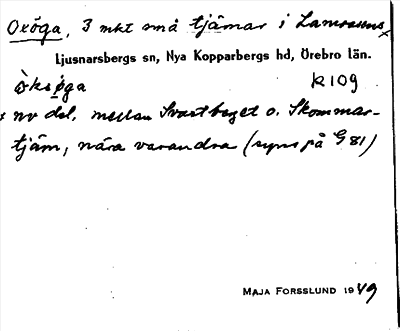 Oxöga, 3 mkt små tjärnar i Lamossens x
Ljusnarsbergs sn, Nya Kopparbergs hd, Örebro län.
òksø̀ga K 109
x nv del, mellan Svartberget o. Skommar-
tjärn, nära varandra (syns på G 81)
MAJA FORSSLUND 1949